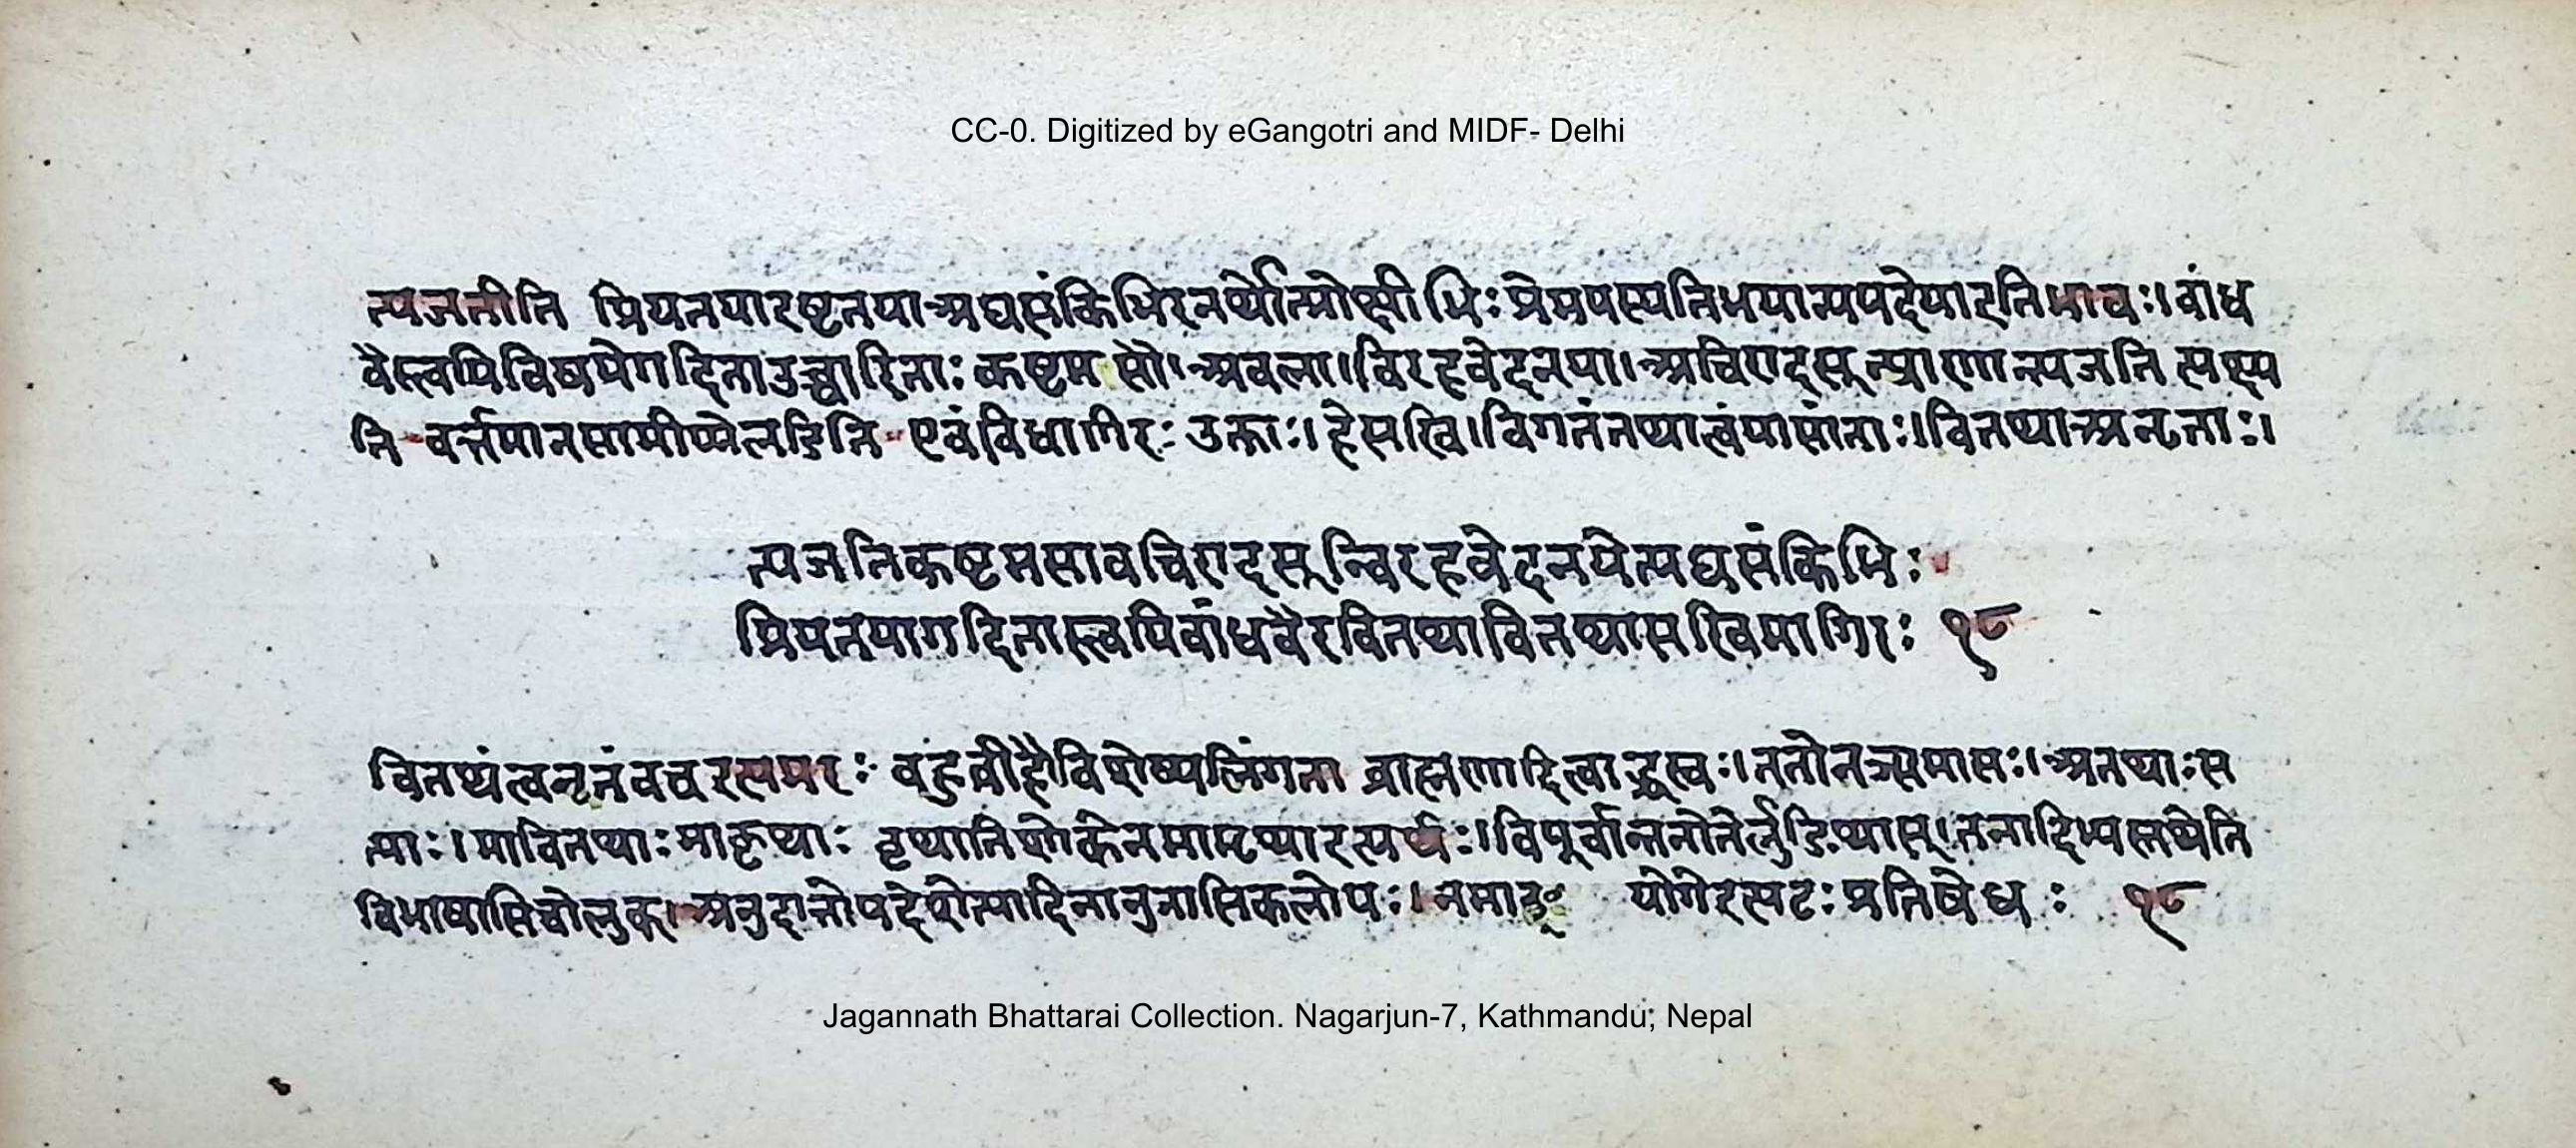 CC-0. Digitized by eGangotri and MIDF- Delhi
त्यजतीति प्रियतयारष्टतया अघसंकिभिरनर्थोत्प्रेक्षीभिः प्रेमपस्यतिभयान्यपदेपीति भावः। वांध
वैस्त्वयिविषयेगदिताउच्चारिताः कष्टम सौ। अवला। विरहवेदनया। अचिरादसून्प्राणान्त्यजति त्यक्ष्य
ति वर्त्तमानसामीप्येलडिति एवंविधागिरः उक्ताः। हेसखि। विगतंतथात्वंयासांताः। वितथाअनृताः।
त्यजतिकष्टमसावचिरादसून्विरहवेदनयेत्यघसंकिभिः
प्रियतयागदितास्त्वयिवांधवैरवितथावितथासखिमागिरः १८
वितथंत्वनृतंवचइत्यमरः वहुव्रीहौविशेष्यलिंगता व्राह्मणादित्वाद्ध्रस्वः। ततोनञ्समासः। अनथाःस
त्याः। मावितथाः माकृथाः वृथातिशोकेनमामृथाइत्यर्थः। विपूर्वात्तनोतेर्लुङि थास्। तनादिभ्यस्तथेति
विभाषासिचोलुक्। अनुदात्तोपदेशेत्यादिनानुनासिकलोपः। नमाङ् योगेइत्यटः प्रतिषेधः १८
Jagannath Bhattarai Collection. Nagarjun-7, Kathmandu, Nepal